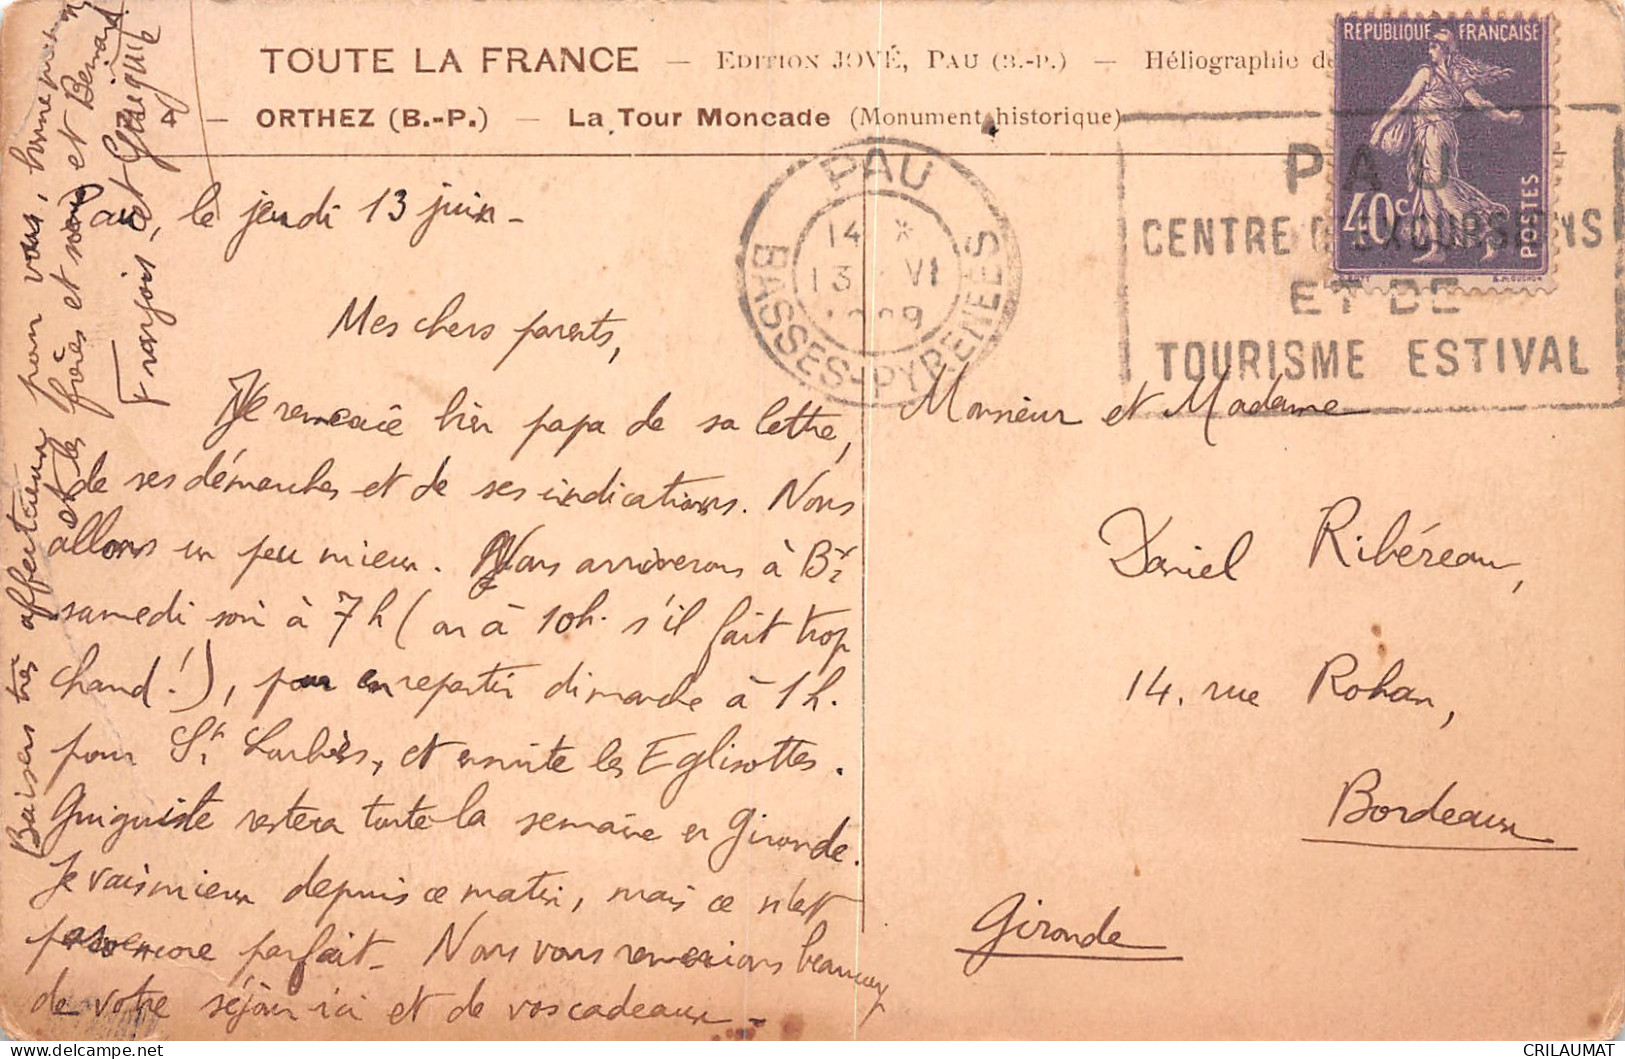 TOUTE LA FRANCE — EDITION JOVÉ, PAU (B.-P.) — Héliographie de
— ORTHEZ (B.-P.) — La Tour Moncade (Monument historique)
RÉPUBLIQUE FRANÇAISE
40c
POSTES
PAU
14 *
13 VI
BASSES-PYRENEES
PAU
CENTRE D'EXCURSIONS
ET DE
TOURISME ESTIVAL
Pau, le jeudi 13 juin -
Mes chers parents,
Je remercie hier papa de sa lettre,
de ses démarches et de ses indications. Nous
allons un peu mieux. Nous arriverons à Bx
samedi soir à 7h (ou à 10h. s'il fait trop
chaud!), pour en repartir dimanche à 1h.
pour St Loubès, et ensuite les Eglisottes.
Guiguite restera toute la semaine en Gironde.
Je vais mieux depuis ce matin, mais ce n'est
pas encore parfait - Nous vous remercions beaucoup
de votre séjour ici et de vos cadeaux -
Baisers très affectueux pour vous,
et les frères et soeurs et Bernard
François, et Guiguite
Monsieur et Madame
Daniel Ribéreau,
14, rue Rohan,
Bordeaux
Gironde
CRILAUMAT